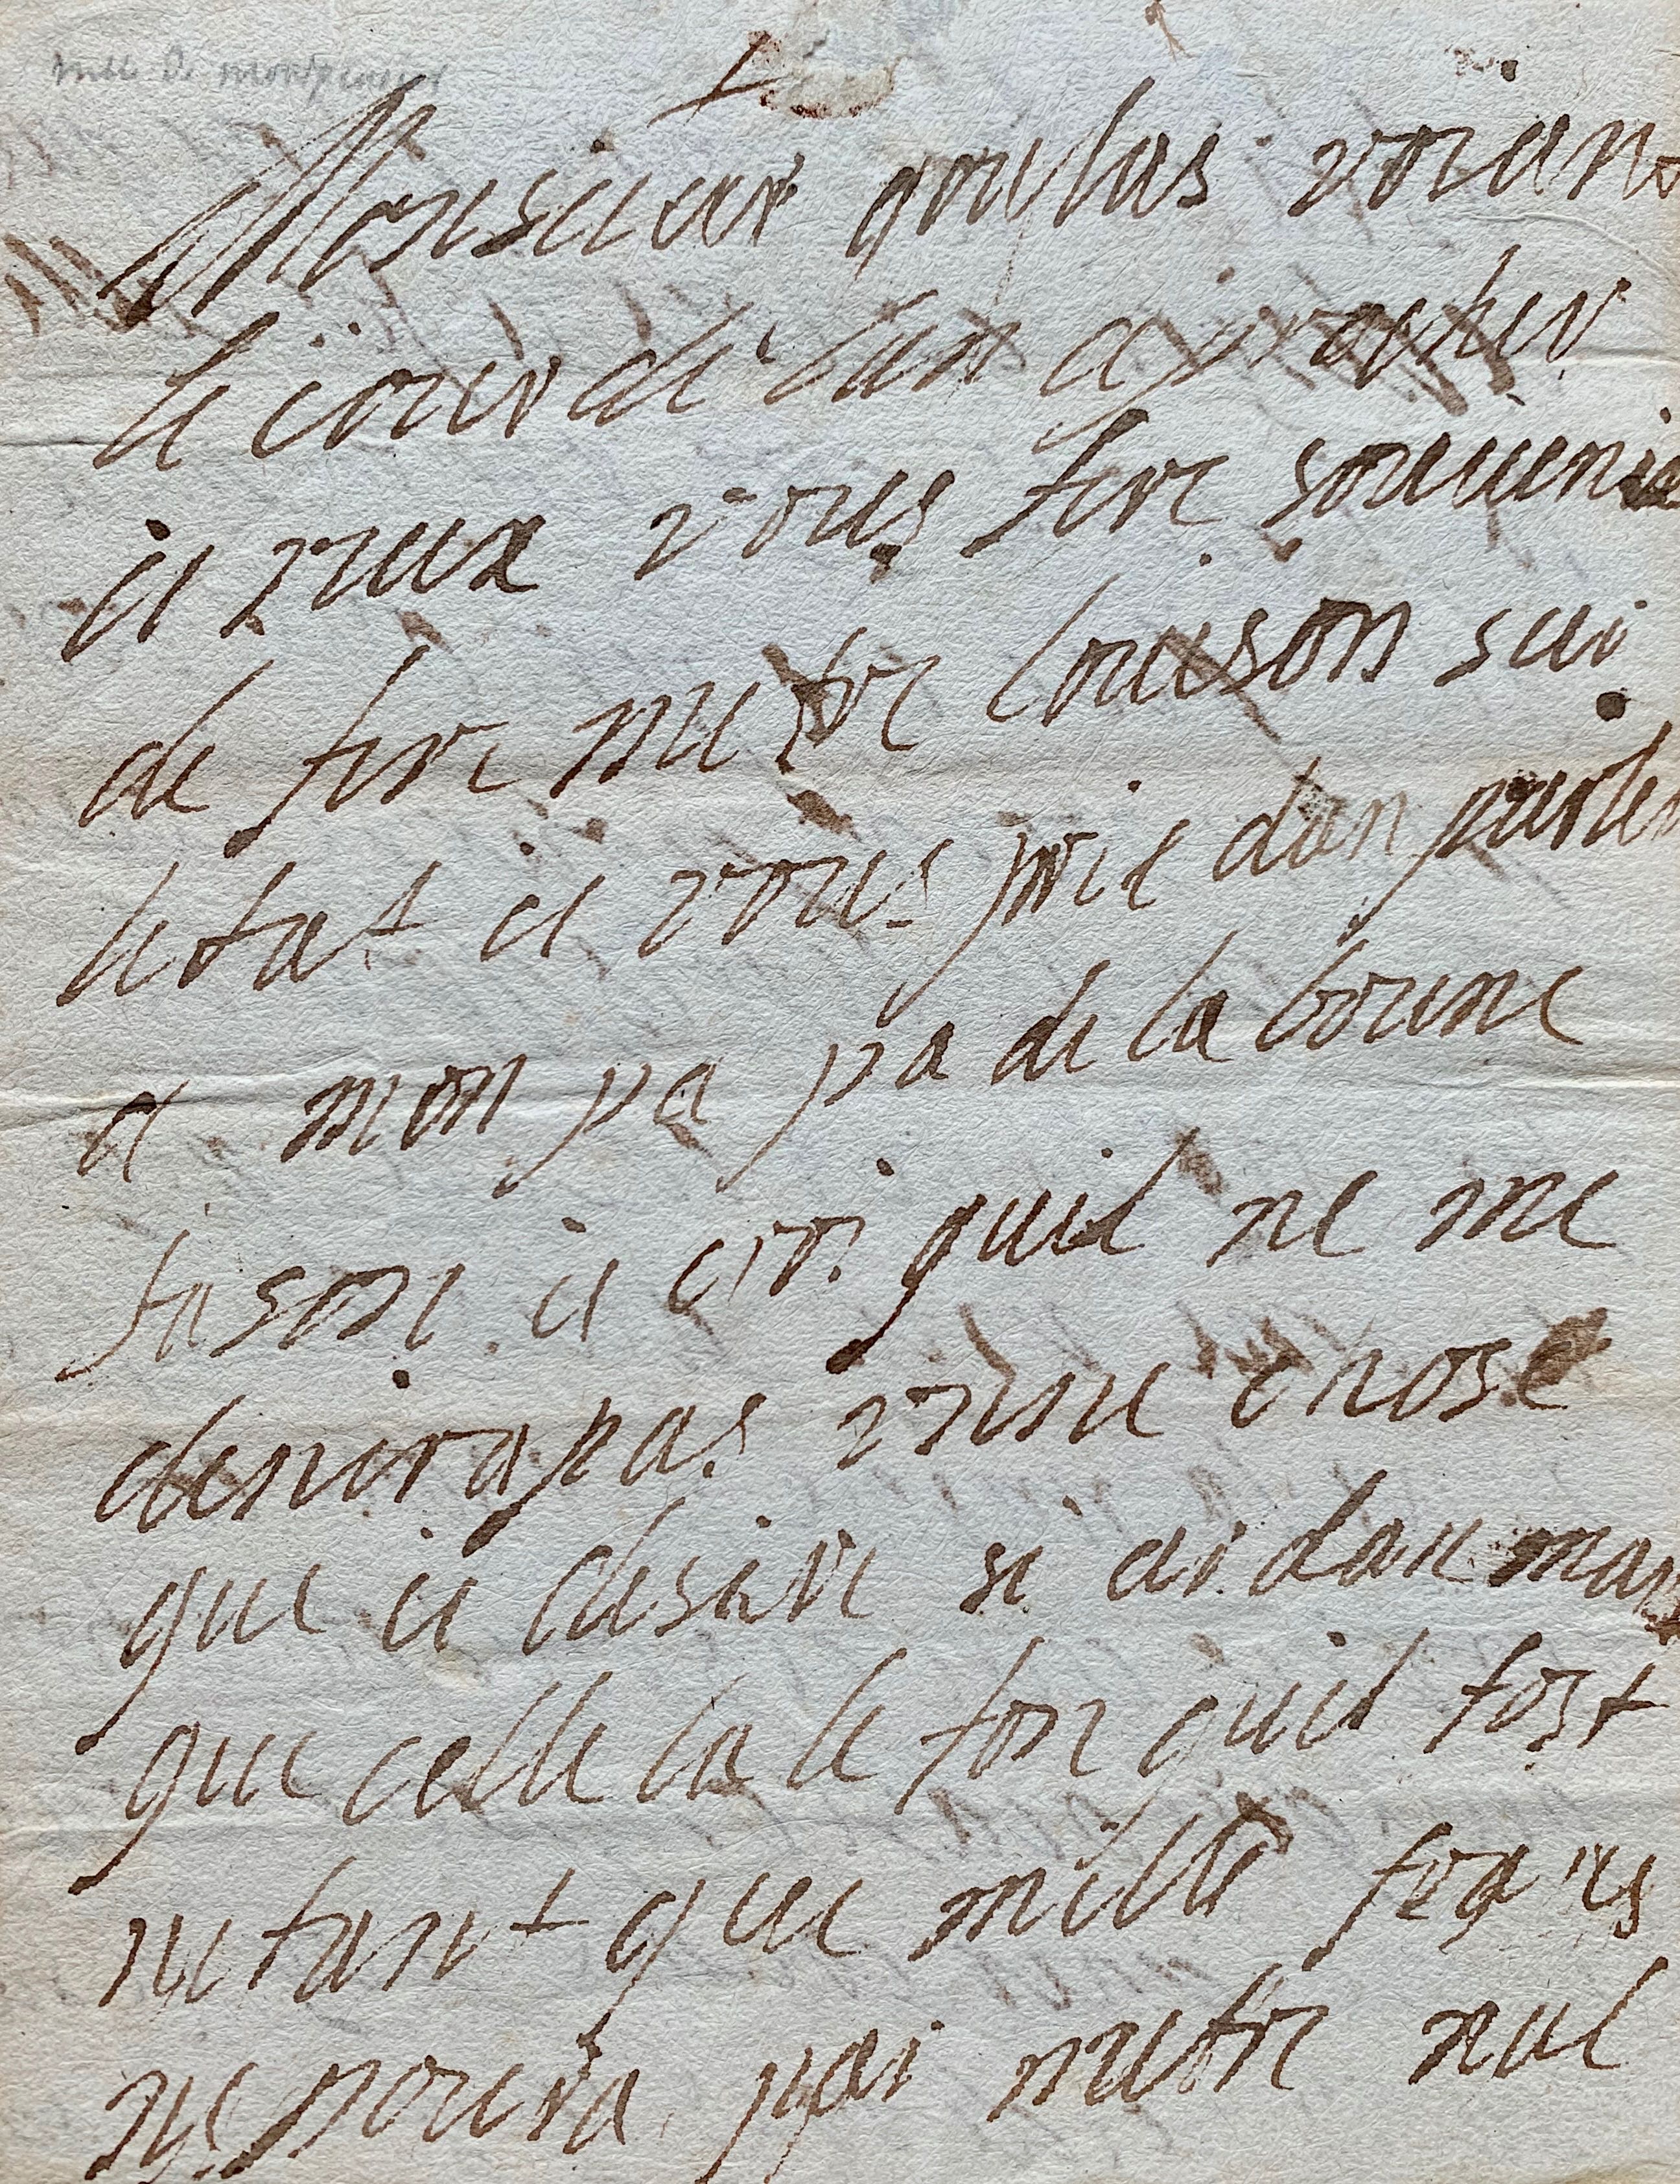 mlle de montpensier
Monsieur goulas voiant
le iour de lan aprocher
ie veux vous fere souuenir
de fere metre louison sur
letat ie vous prie dan parler
a mon pa pa de la bonne
fason ie croi quil ne me
denira pas vne chose
que ie desire si ardanman
que celle la le fon quil fost
metant que mille frans
ne poura pai metre nul